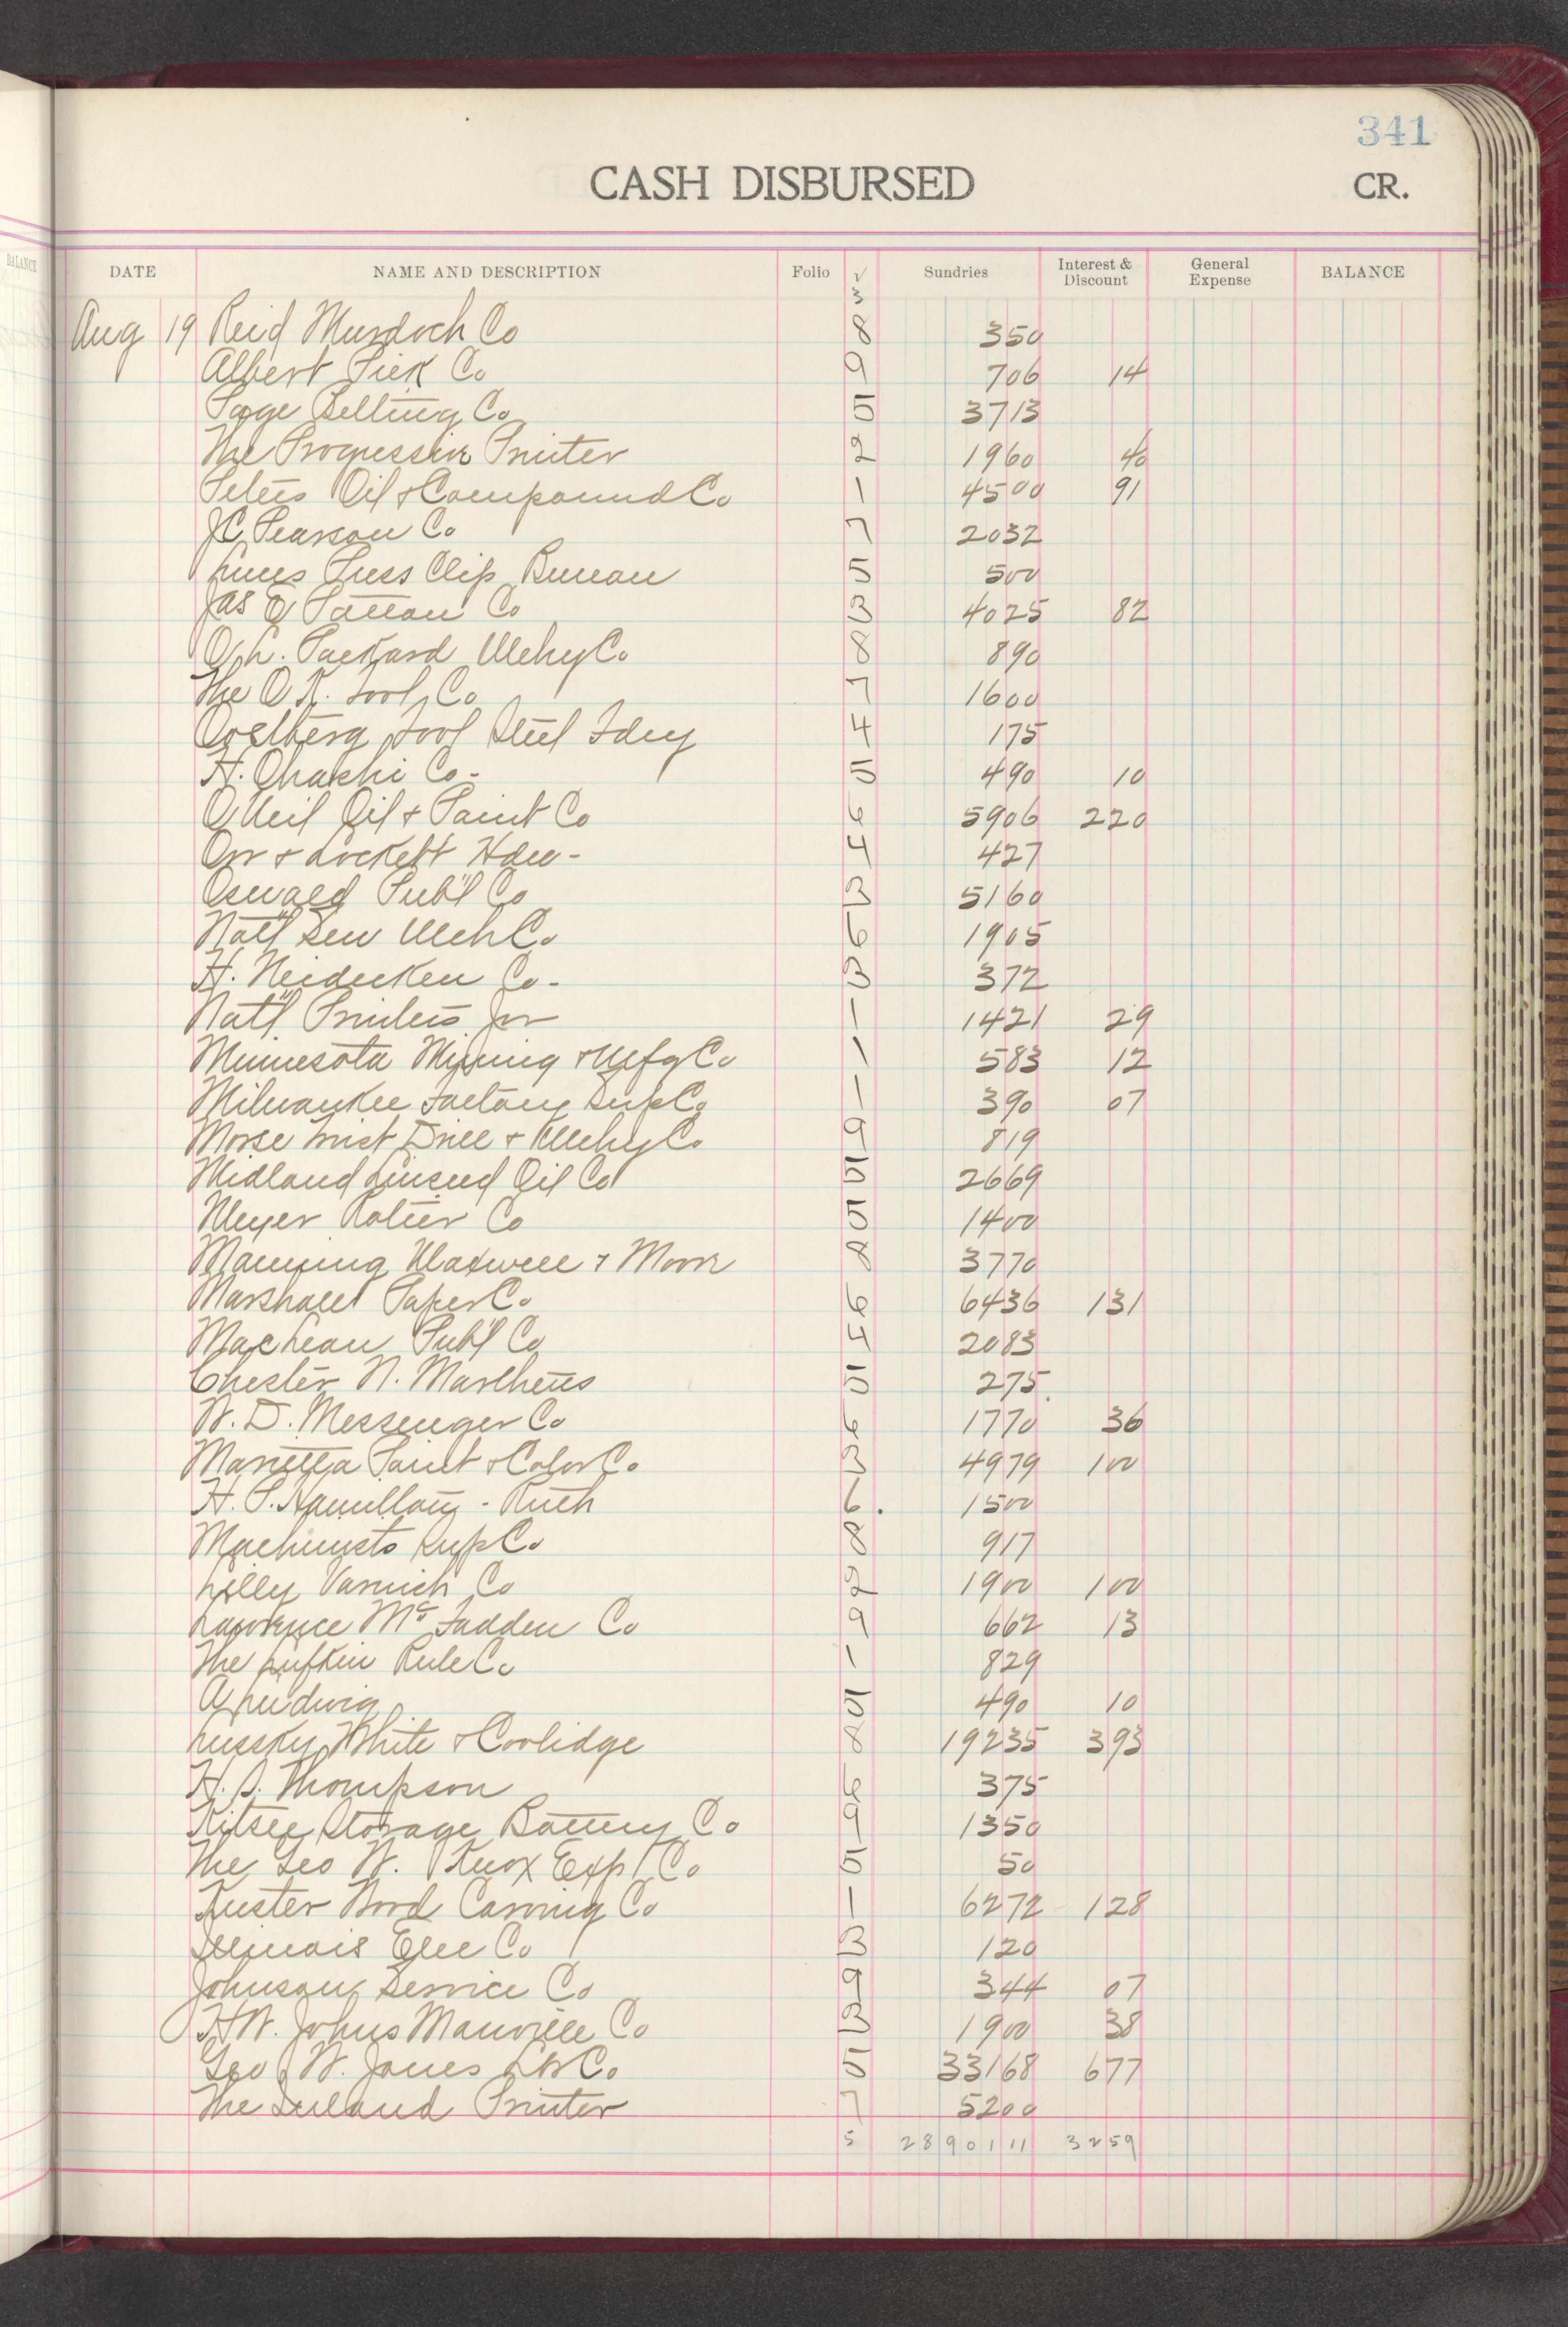 341
CASH DISBURSED CR.
BALANCE DATE NAME AND DESCRIPTION Folio ✓ Sundries Interest & Discount General Expense BALANCE
3
Aug 19 Reid Murdoch Co 8 350
Albert Pick Co 9 706 14
Page Belting Co 5 3713
The Progressive Printer 2 1960 40
Peters Oil & Compound Co 1 4500 91
JC Pearson Co 7 2032
Luces Press Clip Bureau 5 500
Jas E Patton Co 3 4025 82
O.L. Packard Mchy Co 8 890
The O.K. Tool Co 7 1600
Tool Steel Fdry 4 175
H. Ohashi Co- 5 490 10
O Neil Oil & Paint Co 6 5906 220
Orr & Lockett Hdw- 4 427
Oswald Pub'l Co 3 5160
Nat'l Sew Mch Co 6 1905
H. Neidecken Co- 3 372
Nat'l Printers Jor 1 1421 29
Minnesota Mining & Mfg Co 1 583 12
Milwaukee Factory Sup Co 1 390 07
Morse Twist Drill & Mchy Co 9 819
Midland Linseed Oil Co 5 2669
Meyer Rotier Co 5 1400
Manning Maxwell & Moore 8 3770
Marshall Paper Co 6 6436 131
MacLean Pub'l Co 4 2083
Chester N. Marthens 5 275
W. D. Messenger Co 6 1770 36
Marietta Paint & Color Co 3 4979 100
H. P. - Ruth 6 . 1500
Machinists Sup Co 8 917
Lilly Varnish Co 2 1900 100
Lawrence Mc Fadden Co 9 662 13
The Lufkin Rule Co 1 829
A Ludwig 5 490 10
Lussky White & Coolidge 8 19235 393
H. S. Thompson 6 375
Kitsee Storage Battery Co 9 1350
The Geo W. Knox Exp Co 5 50
Kuster Wood Carving Co 1 6272 128
Illinois Elec Co 3 120
Johnson Service Co 9 344 07
H.W. Johns Manville Co 3 1900 38
Geo W. Jones Lbr Co 5 33168 677
The Inland Printer 7 5200
5 28 90 1 11 3259